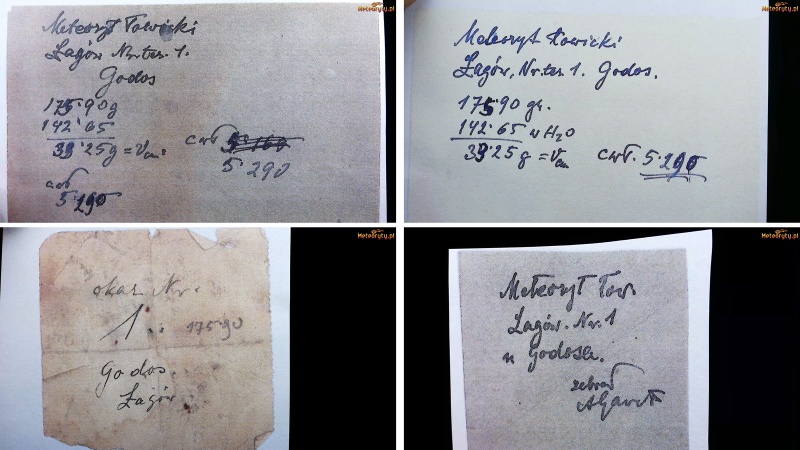 Meteoryty.pl
Meteoryt Łowicki
Łagów Nr. ter. 1.
Godos
175·90 g
142·65
33·25 g = Vcm.
cwł.
5·290
5 290
Meteoryty.pl
Meteoryt Łowicki
Łagów, Nr. ter. 1. Godos.
175·90 gr.
142·65 w H2O
33·25 g = Vcm
cwł. 5·290
Meteoryty.pl
okaz Nr.
1. 175·90
Godos.
Łagów
Meteoryty.pl
Meteoryt Łow.
Łagów. Nr. 1
u Godosa.
zebrał